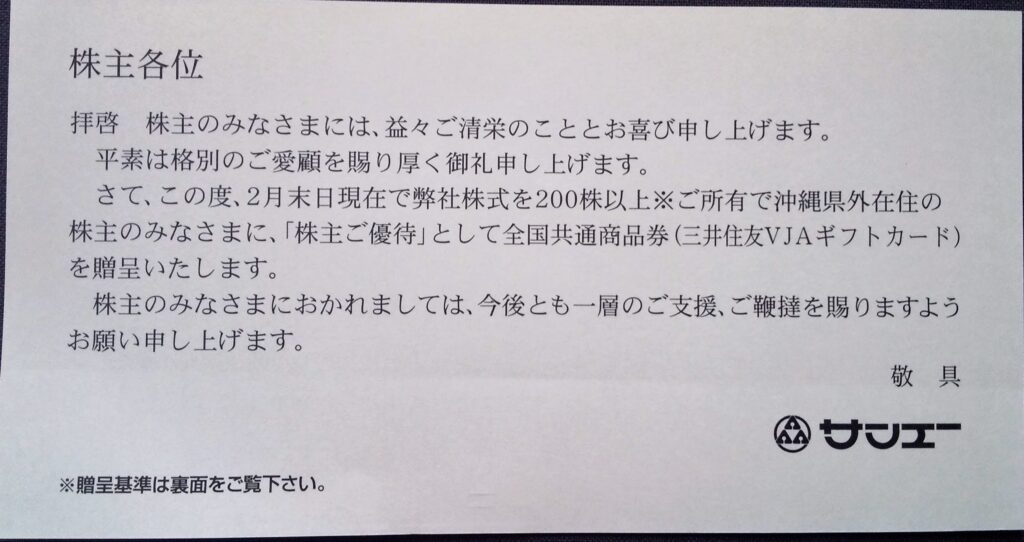 株主各位
拝啓　株主のみなさまには、益々ご清栄のこととお喜び申し上げます。
平素は格別のご愛顧を賜り厚く御礼申し上げます。
さて、この度、2月末日現在で弊社株式を200株以上※ご所有で沖縄県外在住の
株主のみなさまに、「株主ご優待」として全国共通商品券(三井住友VJAギフトカード)
を贈呈いたします。
株主のみなさまにおかれましては、今後とも一層のご支援、ご鞭撻を賜りますよう
お願い申し上げます。
敬　具
サンエー
※贈呈基準は裏面をご覧下さい。